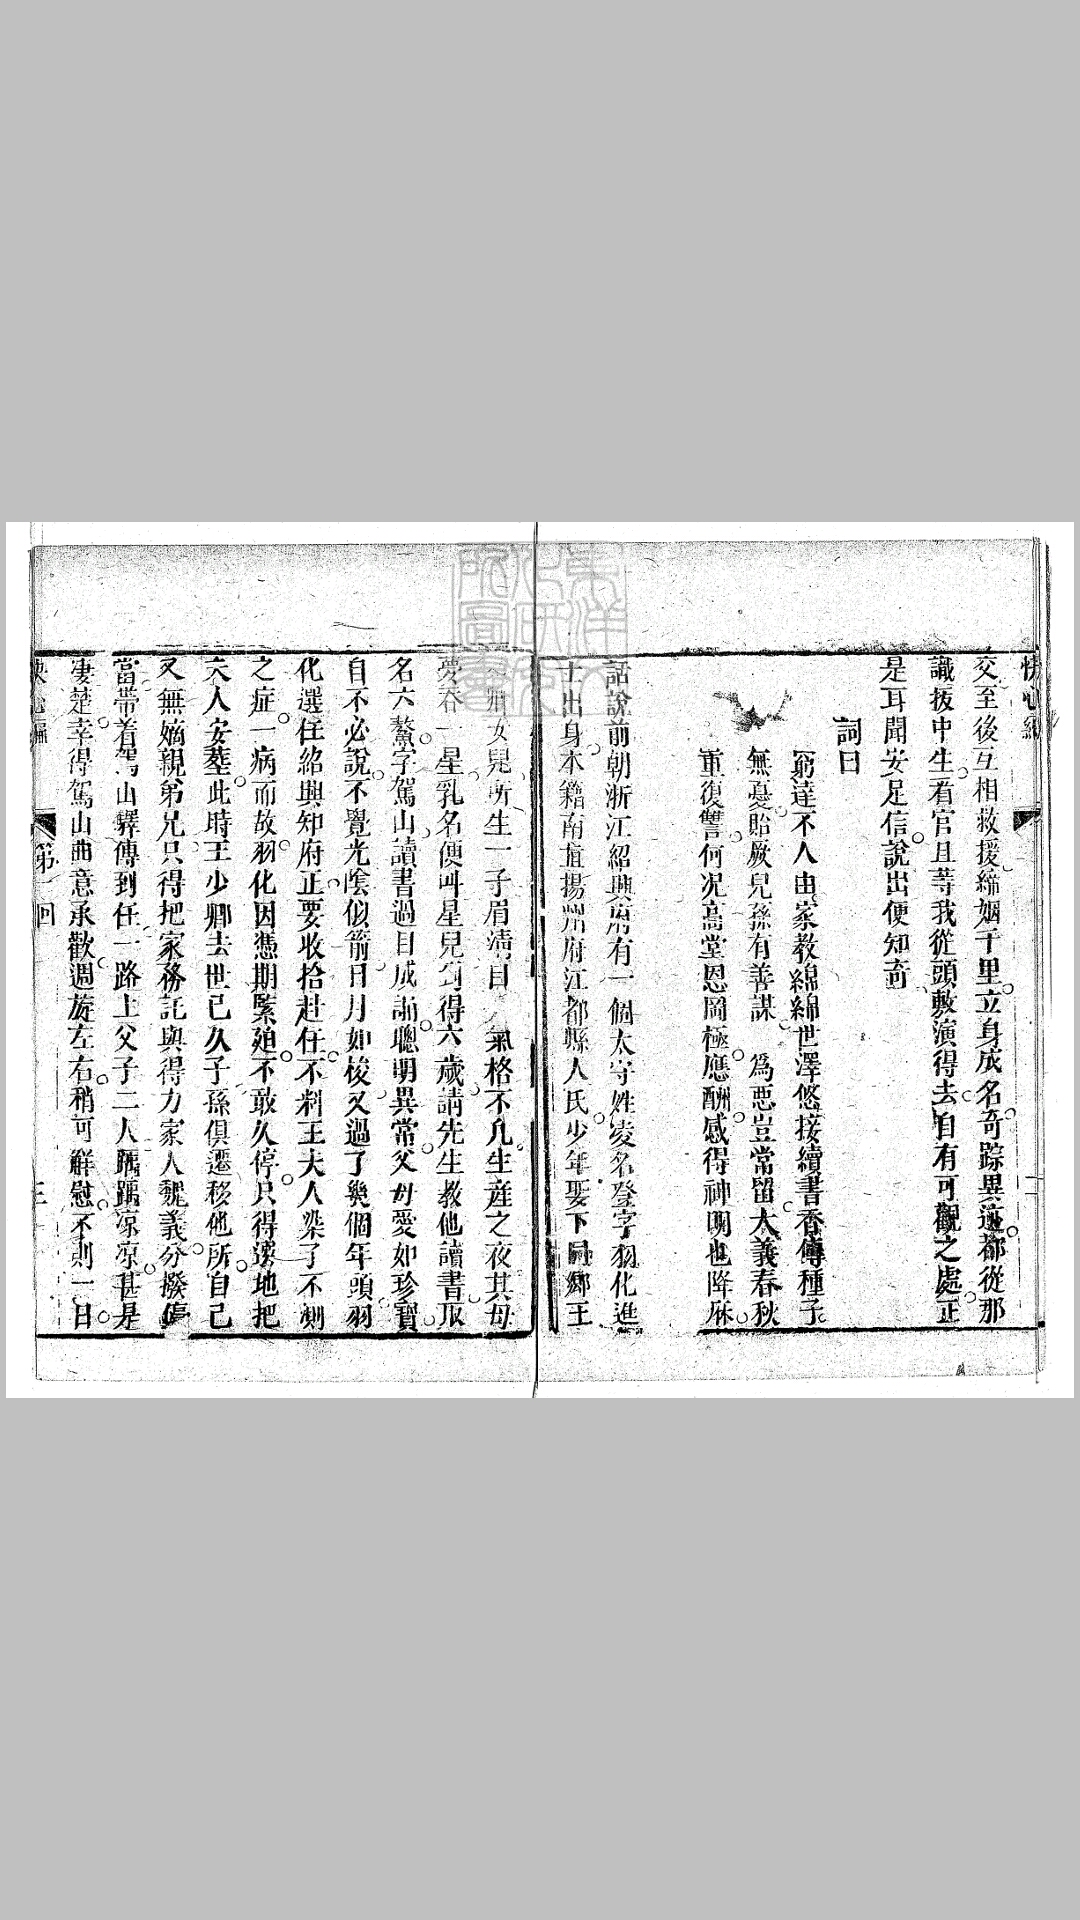 快心編
交至後互相救援締姻千里立身成名奇踪異迹都從那
識拔中生看官且等我從頭敷演得去自有可觀之處正
是耳聞安足信說出便知奇
詞曰
窮達不人由家教綿綿世澤悠接續書香傳種子
無憂貽厥兒孫有善謀 為惡豈常留大義春秋
重復讐何况高堂恩罔極應酬感得神明也降庥
話說前朝浙江紹興府有一個太守姓凌名登字羽化進
士出身本籍南直揚州府江都縣人氏少年娶下同鄉王
卿女兒所生一子眉清目 氣格不凡生産之夜其母
夢吞一星乳名便呌星兒到得六歲請先生教他讀書取
名六鰲字駕山讀書過目成誦聰明異常父母愛如珍寶
自不必說不覺光陰似箭日月如梭又過了幾個年頭羽
化選任紹興知府正要收拾赴任不料王夫人染了不測
之症一病而故羽化因憑期緊廹不敢久停只得遂地把
夫人安塟此時王少卿去世已久子孫俱遷移他所自己
又無嫡親弟兄只得把家務託與得力家人魏義分撥停
當帶着駕山驛傳到任一路上父子二人踽踽凉凉甚是
凄楚幸得駕山曲意承歡週旋左右稍可解慰不則一日
快心編
第一回
三